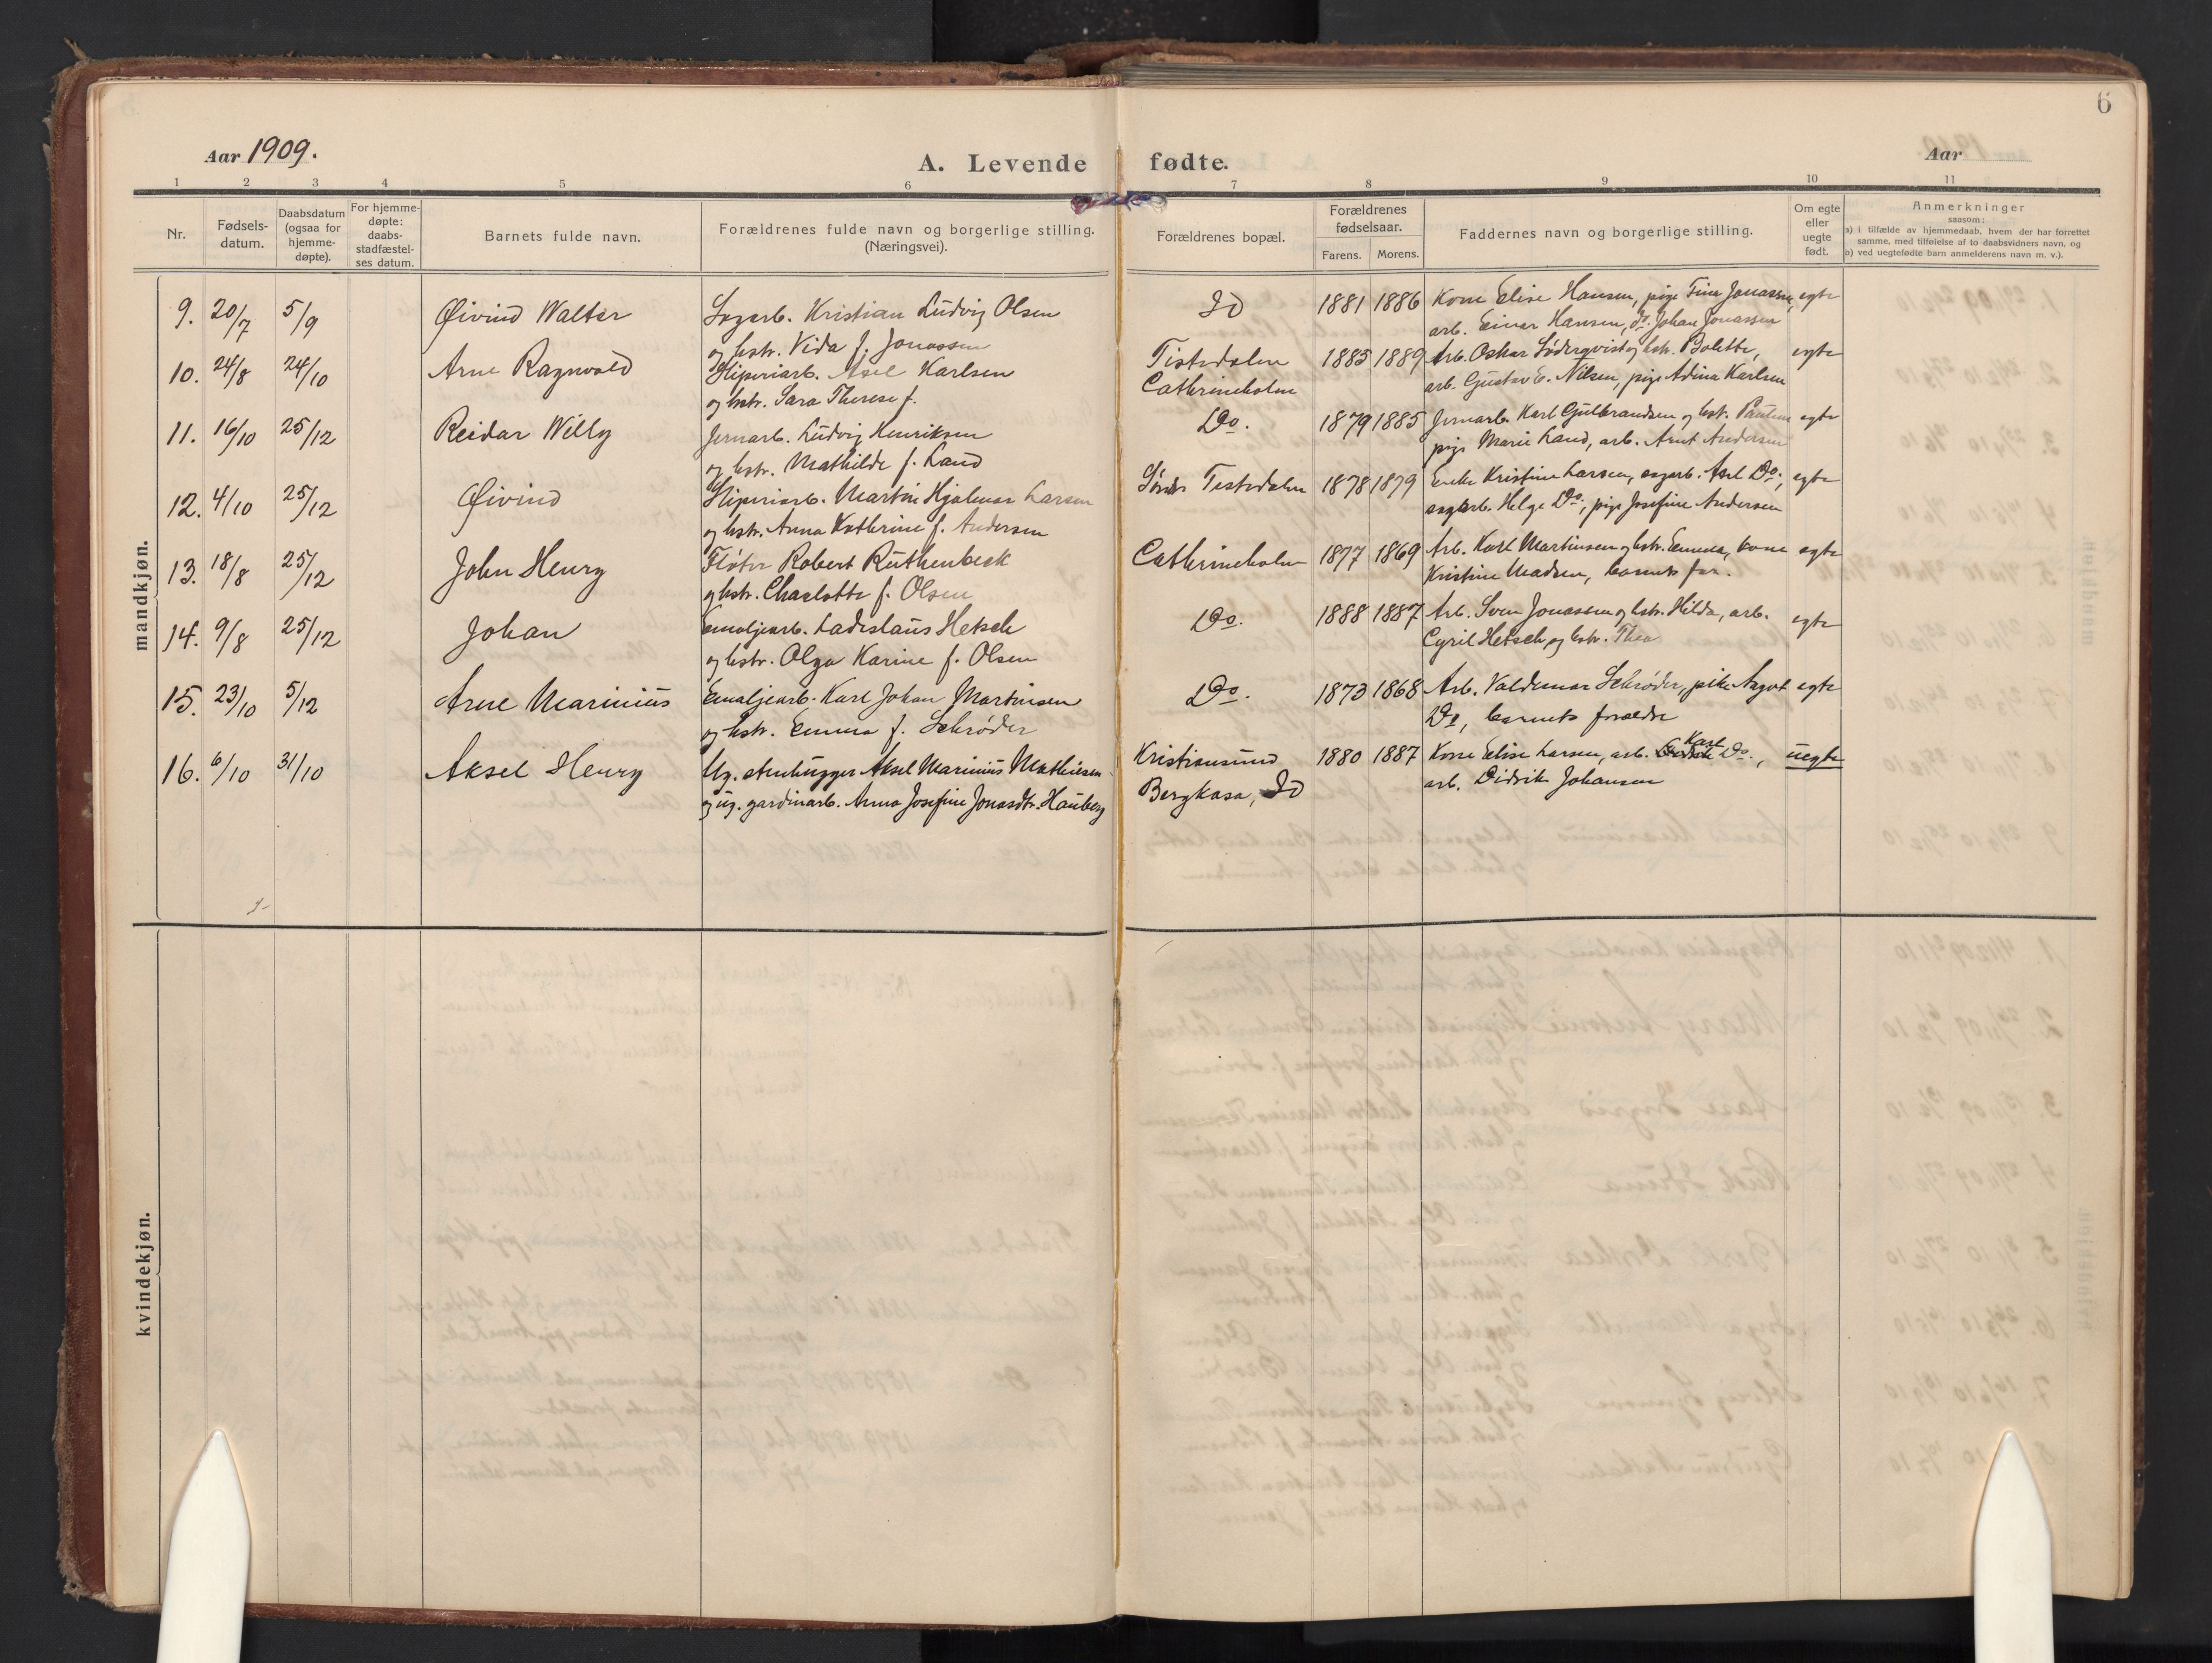 6
Aar 1909.
A. Levende fødte.
Aar
1 2 3 4 5 6 7 8 9 10 11
Nr.
Fødsels-
datum.
Daabsdatum
(ogsaa for
hjemme-
døpte).
For hjemme-
døpte:
daabs-
stadfæstel-
ses datum.
Barnets fulde navn.
Forældrenes fulde navn og borgerlige stilling.
(Næringsvei).
Forældrenes bopæl.
Forældrenes
fødselsaar.
Farens. Morens.
Faddernes navn og borgerlige stilling.
Om egte
eller
uegte
født.
Anmerkninger
saasom:
a) i tilfælde av hjemmedaab, hvem der har forrettet
samme, med tilføielse af to daabsvidners navn, og
b) ved uegtefødte barn anmelderens navn m. v.).
mandkjøn.
9. 20/7 5/9 Øivind Walter Sagarb. Kristian Ludvig Olsen Id 1881 1886 Kone Elise Hansen, pige Tina Jonassen, egte
og hstr. Vida f. Jonassen arb. Einar Hansen, do. Johan Jonassen
10. 24/8 24/10 Arne Ragnvald Sliperiarb. Axel Karlsen Tistedalen 1885 1889 Arb. Oskar Söderqvist og hstr. Bolette, egte
og hstr. Sara Therese f. Cathrineholm arb. Gustav E. Nilsen, pige Adina Karlsen
11. 16/10 25/12 Reidar Willy Jernarb. Ludvig Henriksen Do. 1879 1885 Jernarb. Karl Gulbrandsen og hst. Pauline egte
og hstr. Mathilde f. Land pige Marie Land, arb. Arnt Andersen
12. 4/10 25/12 Øivind Sliperiarb. Martin Hjalmar Larsen Søndr Tistedalen 1878 1879 Enke Kristine Larsen, sagarb. Axel Do., egte
og hstr. Anna Kathrine f. Andersen sagarb. Helge Do., pige Josefine Andersen
13. 18/8 25/12 John Henry Fløter Robert Ruthenbeck Cathrineholm 1877 1869 Arb. Karl Martinsen og hstr. Emma, kone egte
og hstr. Charlotte f. Olsen Kristine Madsen, barnets far.
14. 9/8 25/12 Johan Emaljearb. Ladislaus Hetsch Do. 1888 1887 Arb. Sven Jonassen og hstr. Hilda, arb. egte
og hstr. Olga Karine f. Olsen Cyril Hetsch og hstr. Thea
15. 23/10 5/12 Arne Marinius Emaljearb. Karl Johan Martinsen Do. 1873 1868 Arb. Valdemar Schrøder, pike Aagot egte
og hstr. Emma f. Schrøder Do, barnets forældre
16. 6/10 31/10 Aksel Henry Ug. stenhugger Aksel Marinius Mathiesen Kristiansund 1880 1887 Kone Elise Larsen, arb. Karl Do., uegte
og ug. gardinarb. Anna Josefine Jonasdtr. Hauberg Bergkasa, Id arb. Didrik Johansen
kvindekjøn.